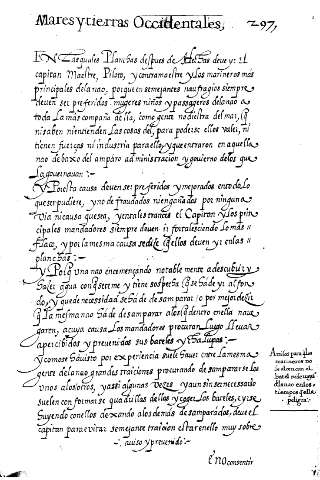 Mares y tierras Occidentales, 297,
EN Las quales Planchas despues de hechas deue yr El
capitan Maestre, Piloto, y contramaestre y los marineros mas
principales de la nao, porque en semejantes naufragios siempre
deuen ser preferidos mugeres niños y passageros de la nao a
toda la mas compaña de ella, como gente no diestra del mar, q
ni saben ni entienden Las cosas del, para poderse ellos valer, ni
tienen fuerças ni industria para ello, y que entraron en aquella
nao debaxo del amparo administracion y gouierno delos que
La gouernauan:~
Y Por esta causa deuen ser preferidos y mejorados en todo Lo
que ser pudiere, y no defraudados ni engañados por ninguna
via ni causa que sea, y en tales trances el Capitan y Los prin
cipales mandadores siempre deuen yr fortaleciendo Lo mas
flaco, y por la mesma causa se dize q ellos deuen yr en las
planchas:~
Y Por q Una nao en començando notablemente a descubrir y
hazer agua con que se teme y tiene sospecha q se ha de yr al fon
do, y q de necessidad se ha de desamparar o por mejor dezir
q La mesma nao ha de desamparar a los q dentro en ella naue
garen, a cuya causa Los mandadores procuran Luego Lleuar
apercibidos y preuenidos sus bateles y chalupas:~
Y como se ha visto por experiencia suele hauer entre la mesma
gente de la nao grandes traiciones procurando desamparar se los
unos a los otros, y assi algunas vezes y aun sin ser necessario
suelen con formar se quadrillas dellos y coger Los bateles, e yrse
huyendo con ellos dexando a los demas desamparados, deue el
capitan para euitar semejante traicion estar en ello muy sobre
auiso y preuenido:~
Auiso para q los
marineros no
se alcen con el
batel o chalupa
de la nao en los
tiempos de ssu
peligro.
E no consentir